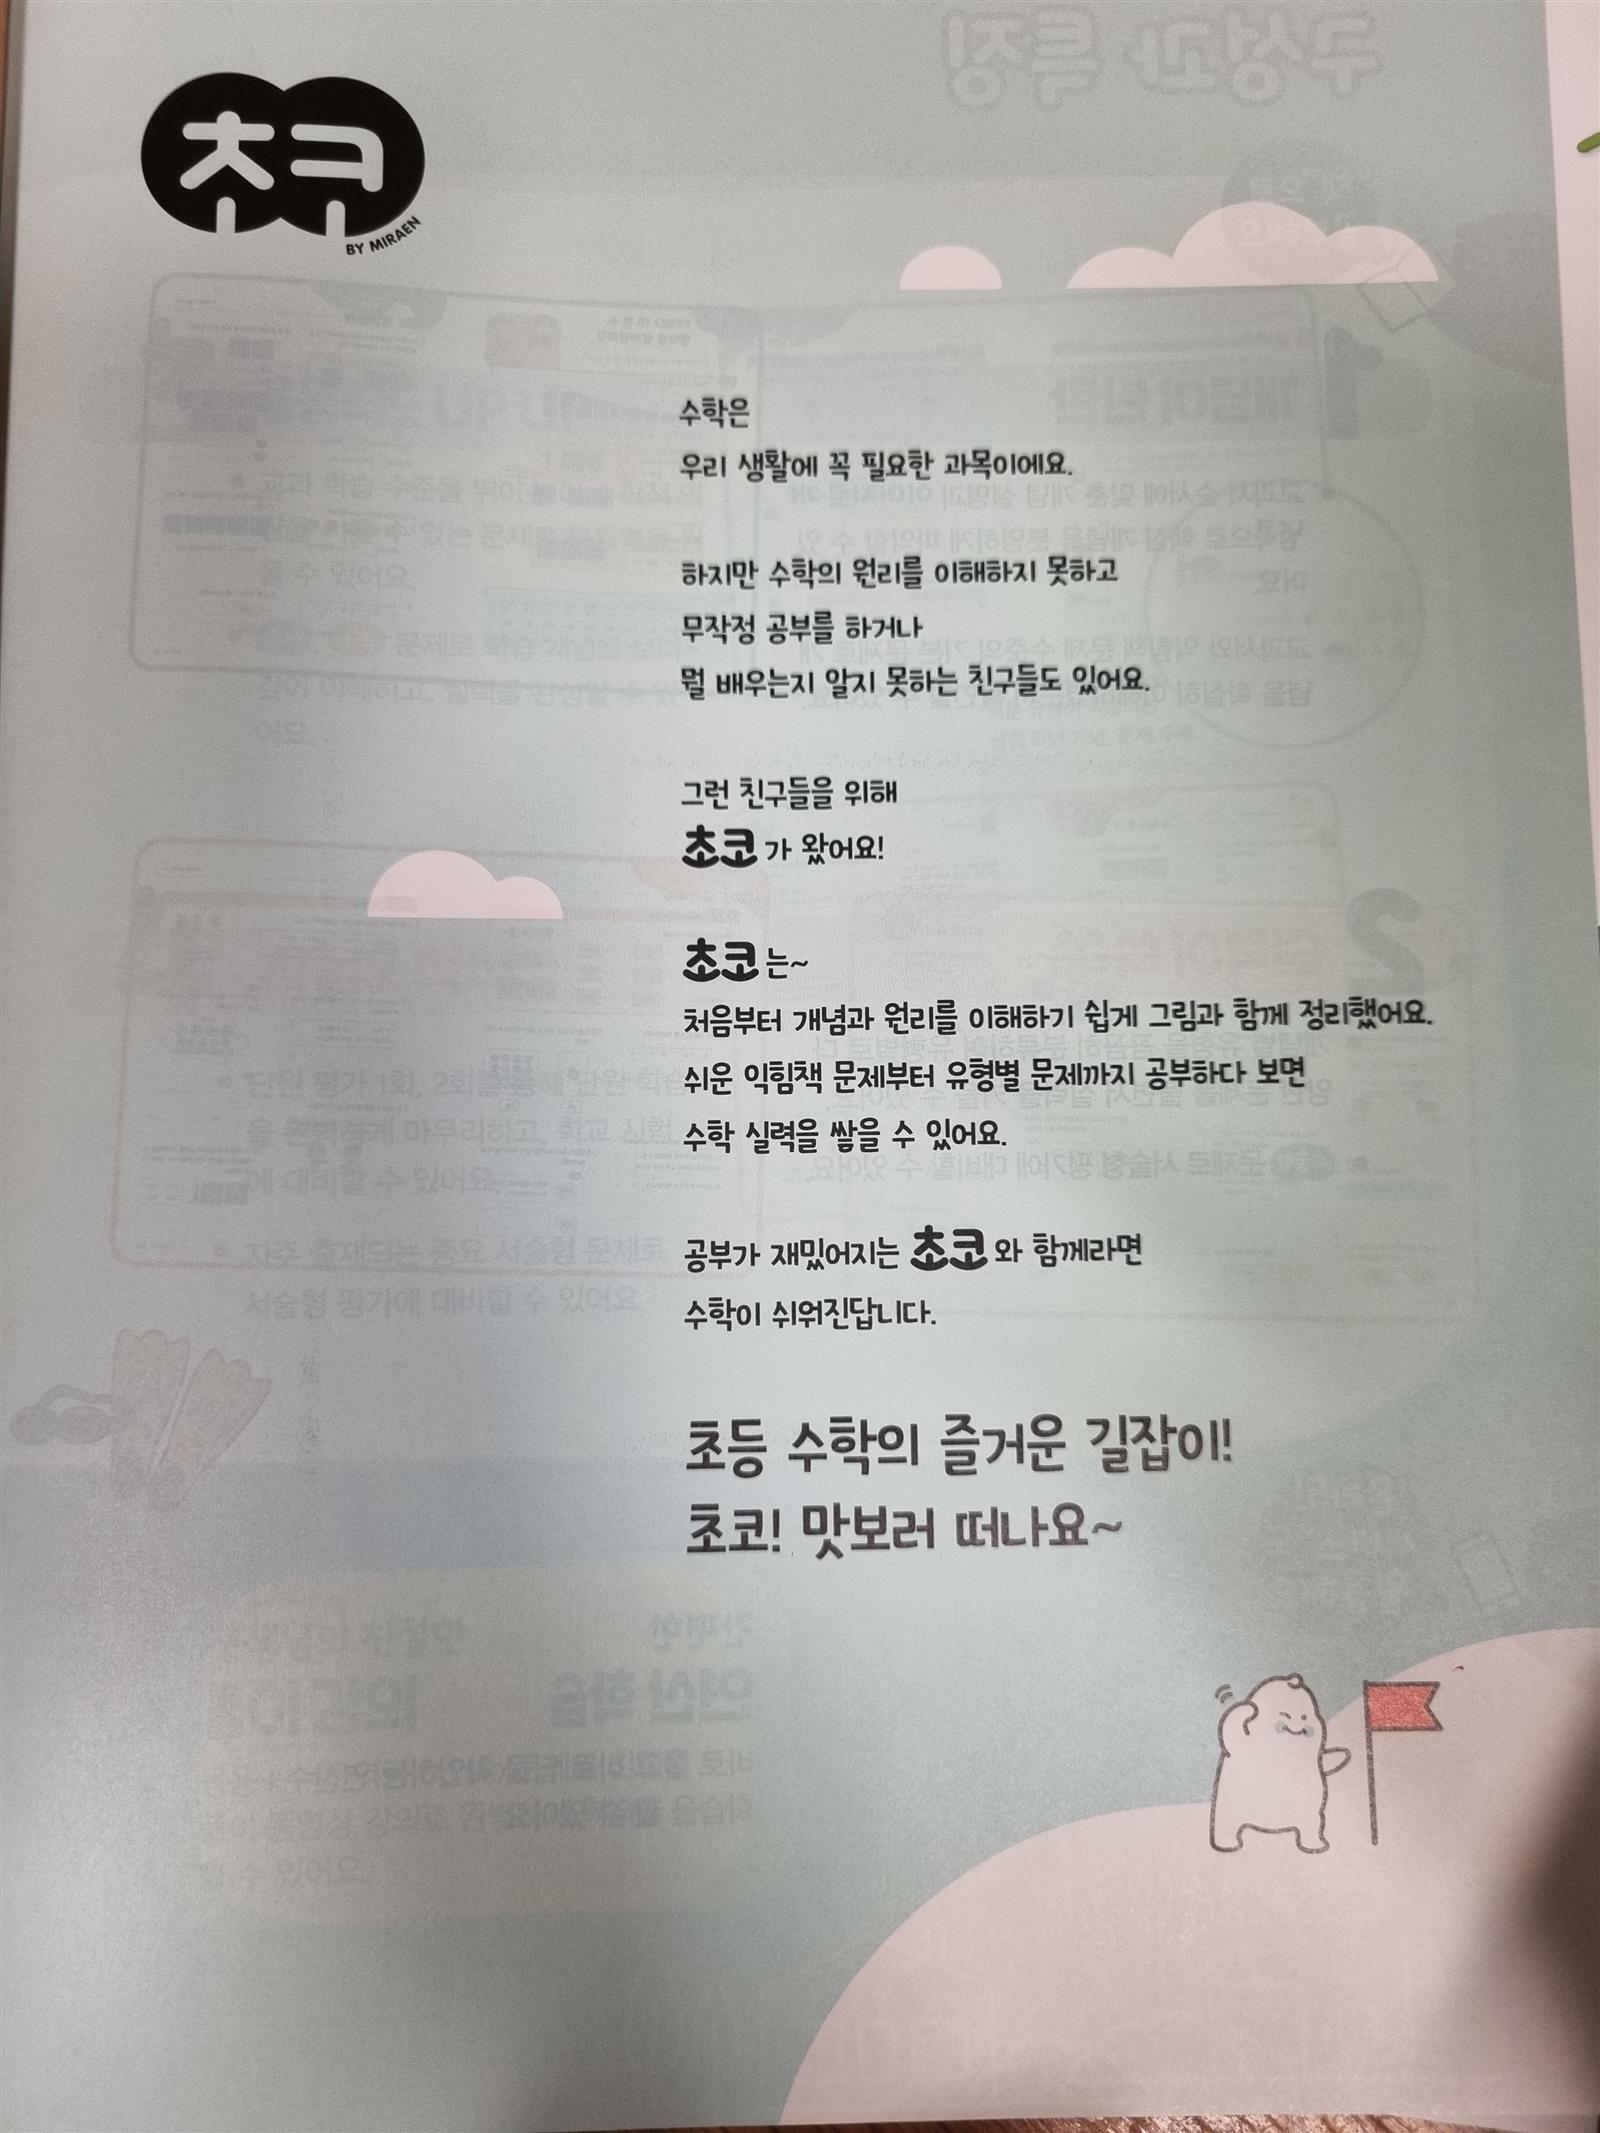 초코
BY MIRAEN
수학은
우리 생활에 꼭 필요한 과목이에요.
하지만 수학의 원리를 이해하지 못하고
무작정 공부를 하거나
뭘 배우는지 알지 못하는 친구들도 있어요.
그런 친구들을 위해
초코가 왔어요!
초코는~
처음부터 개념과 원리를 이해하기 쉽게 그림과 함께 정리했어요.
쉬운 익힘책 문제부터 유형별 문제까지 공부하다 보면
수학 실력을 쌓을 수 있어요.
공부가 재밌어지는 초코와 함께라면
수학이 쉬워진답니다.
초등 수학의 즐거운 길잡이!
초코! 맛보러 떠나요~